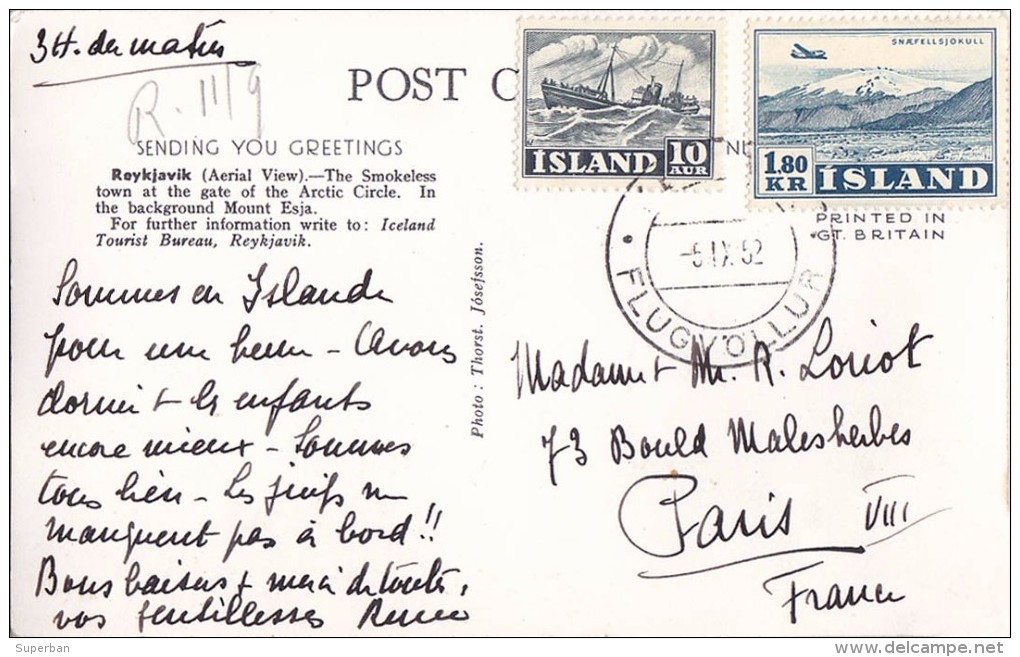 3H. du matin
R. 11/9
POST C
SENDING YOU GREETINGS
Reykjavik (Aerial View).—The Smokeless
town at the gate of the Arctic Circle. In
the background Mount Esja.
For further information write to: Iceland
Tourist Bureau, Reykjavik.
Sommes en Islande
pour une heure - Avons
dormi + les enfants
encore mieux - Sommes
tous bien - Les juifs ne
manquent pas à bord!!
Bons baisers + merci de toutes
vos gentillesses
Photo : Thorst. Jósefsson.
ÍSLAND 10 AUR
SNÆFELLSJÖKULL
1.80 KR ÍSLAND
NU
PRINTED IN
GT. BRITAIN
-5.IX.52
FLUGVÖLLUR
Madame + Mr. R. Loriot
73 Bould Malesherbes
Paris VIII
France
Superban
www.delcampe.net